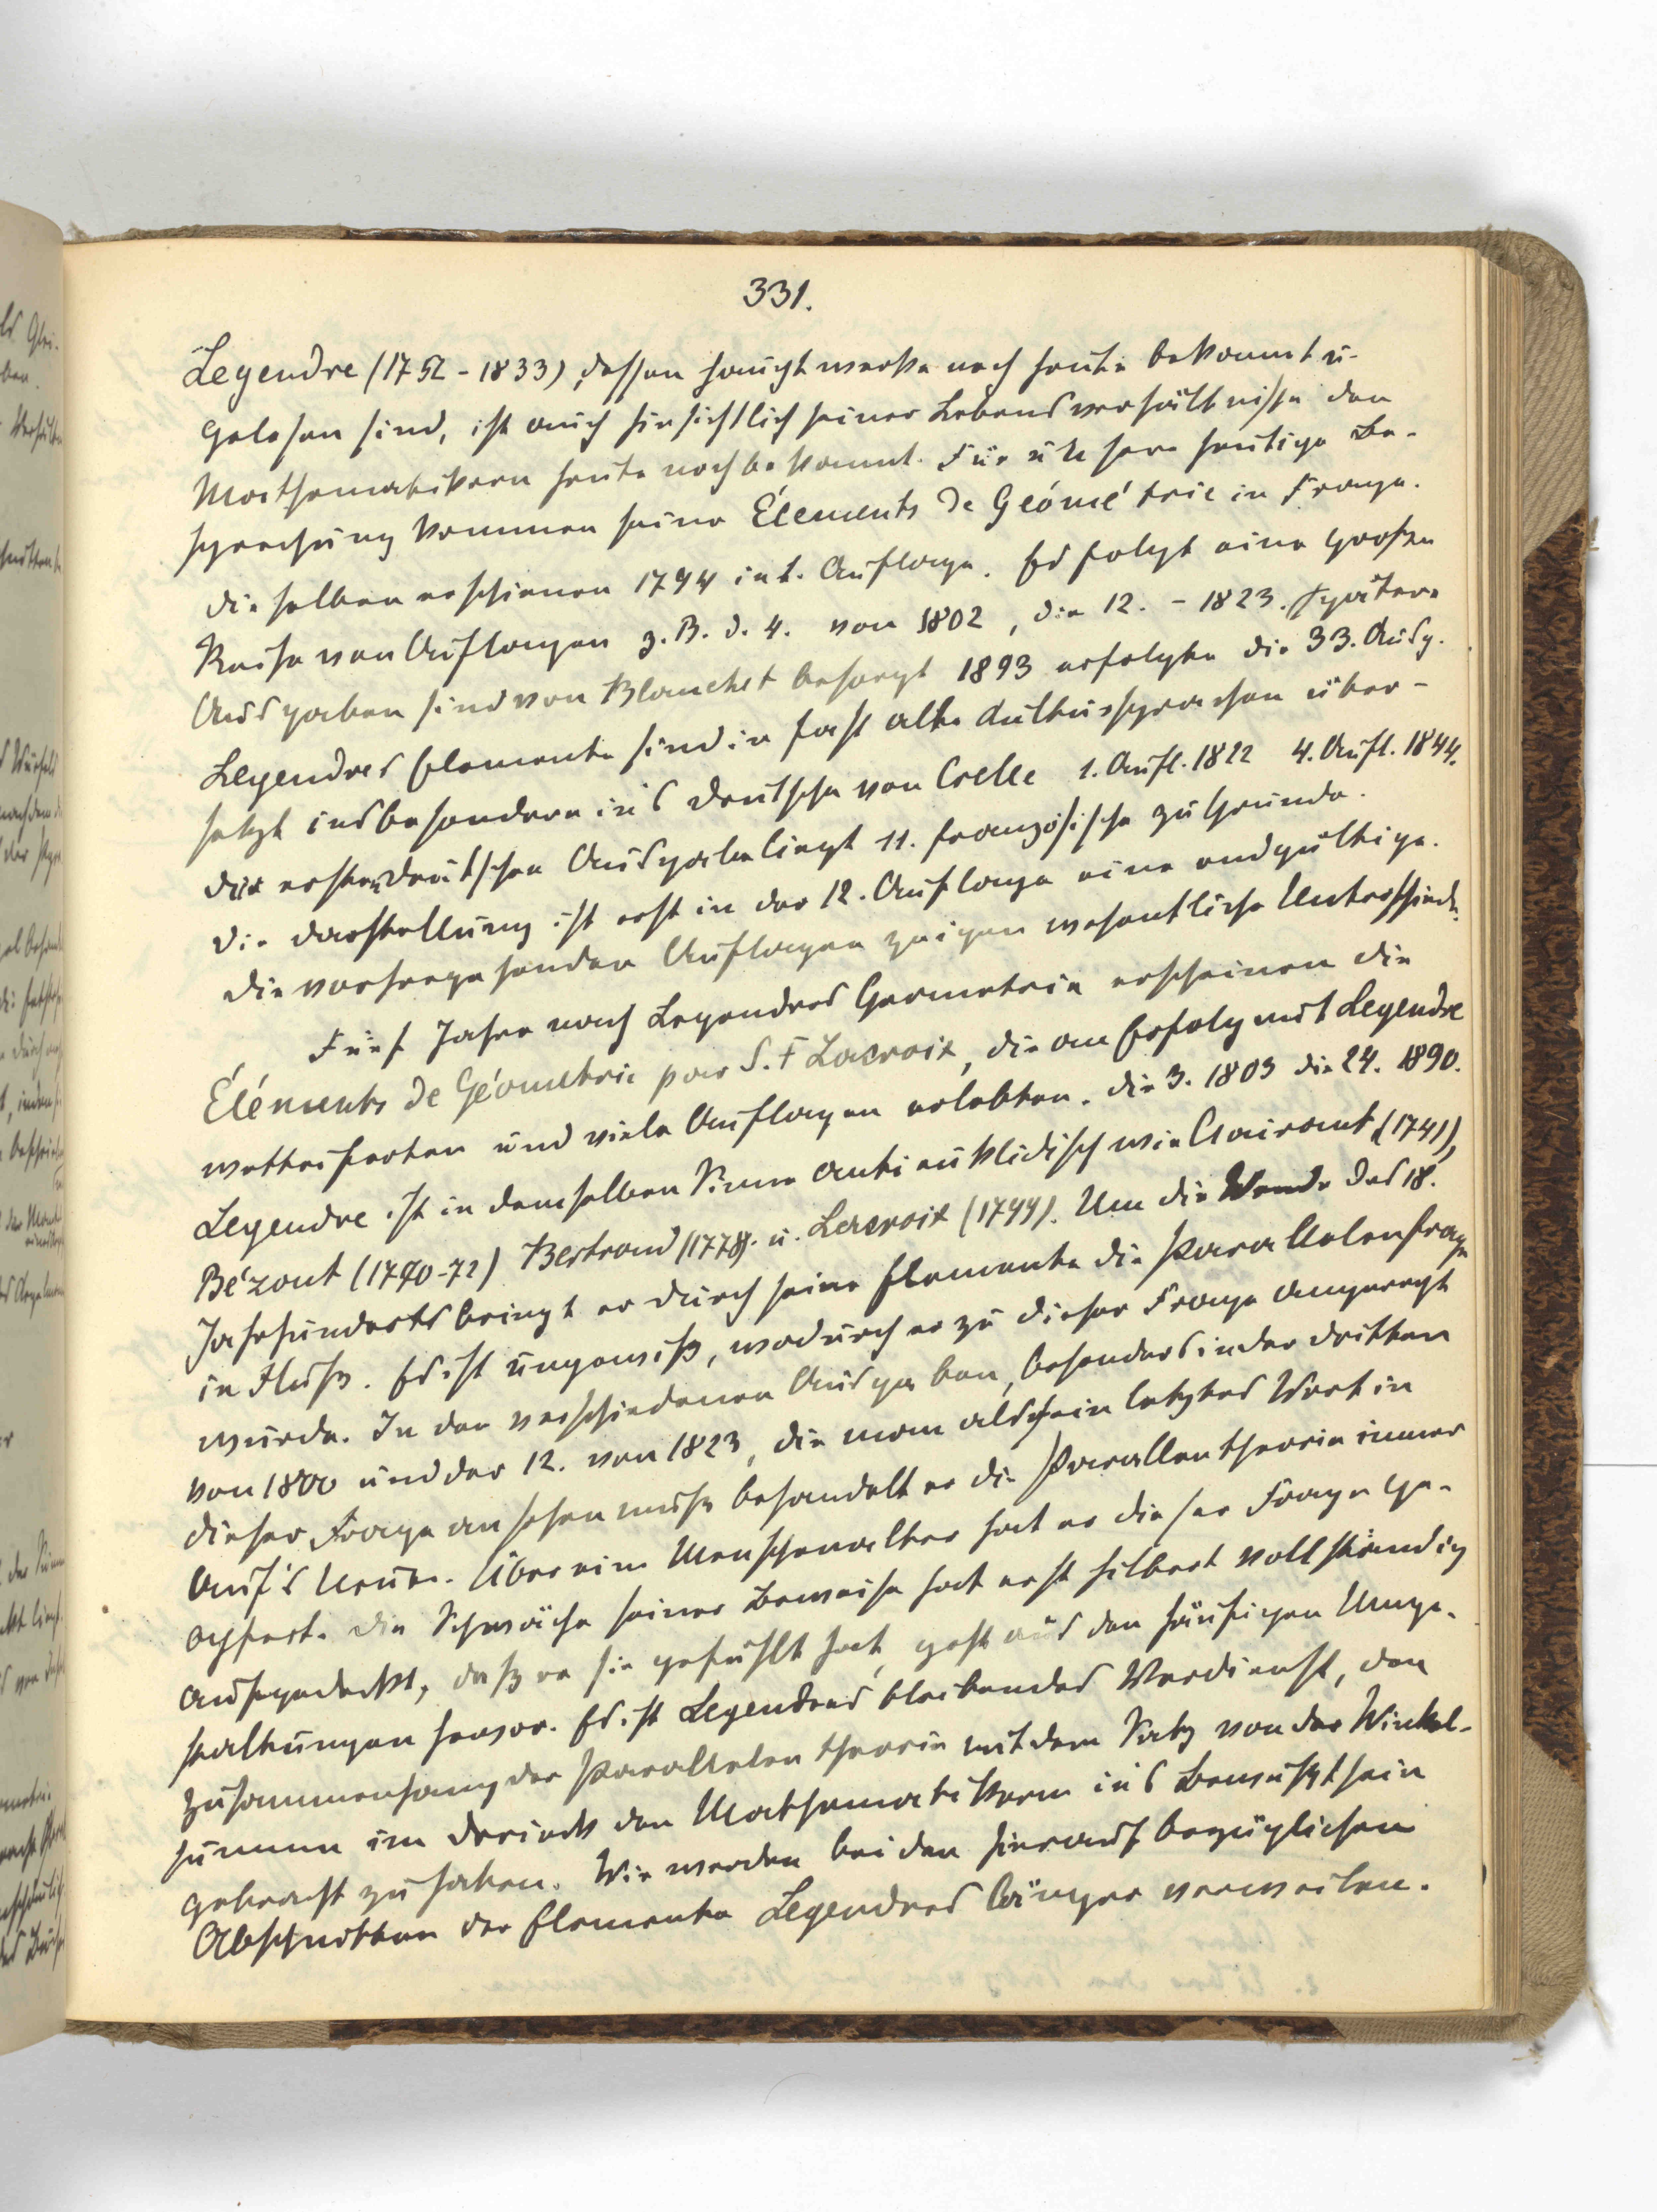 331.
Legendre (1752-1833), dessen Hauptwerke noch heute bekannt u-
gelesen sind, ist auch hinsichtlich seiner Lebensverhältnisse den
Mathematikern heute noch bekannt. Für unsere heutige Be-
sprechung kommen seine Élements de Géométrie in Frage.
Dieselben erschienen 1794 in 1. Auflage. Es folgt eine große
Reihe von Auflagen z. B. d. 4. von 1802, die 12. - 1823. Spätere
Ausgaben sind von Blanchet besorgt 1893 erfolgte die 33. Ausg.
Legendres Elemente sind in fast alle Kultursprachen über-
setzt insbesondere in's Deutsche von Crelle 1. Aufl. 1822 4. Aufl. 1844.
Der ersten deutschen Ausgabe liegt 11. französische zu Grunde.
Die Darstellung ist erst in der 12. Auflage eine endgültige.
Die vorhergehenden Auflagen zeigen wesentliche Unterschiede.
Fünf Jahre nach Legendres Geometrie erscheinen die
Éléments de Géometrie par S. F Lacroix, die an Erfolg mit Legendre
wetteiferten und viele Auflagen erlebten. Die 3. 1803 die 24. 1890.
Legendre ist in demselben Sinne antieuklidisch wie Clairaut (1741),
Bézout (1770-72) Bertrand (1778). u. Lacroix (1799). Um die Wende des 18.
Jahrhunderts bringt er durch seine Elemente die Parallelenfrage
in Fluß. Es ist ungewiß, wodurch er zu dieser Frage angeregt
wurde. In den verschiedenen Ausgaben, besonders in der dritten
von 1800 und der 12. von 1823, die man als sein letztes Wort in
dieser Frage ansehen muß behandelt er die Parallentheorie immer
auf's Neue. Über ein Menschenalter hat er dieser Frage ge-
opfert. Die Schwäche seiner Beweise hat erst Hilbert vollständig
aufgedeckt, daß er sie gefühlt hat, geht aus den häufigen Umge-
staltungen hervor. Es ist Legendres bleibendes Verdienst, den
Zusammenhang der Parallelentheorie mit dem Satz von der Winkel-
summe im Dreieck den Mathematikern in's Bewußtsein
gebracht zu haben. Wir werden bei den hierauf bezüglichen
Abschnitten der Elemente Legendres länger verweilen.